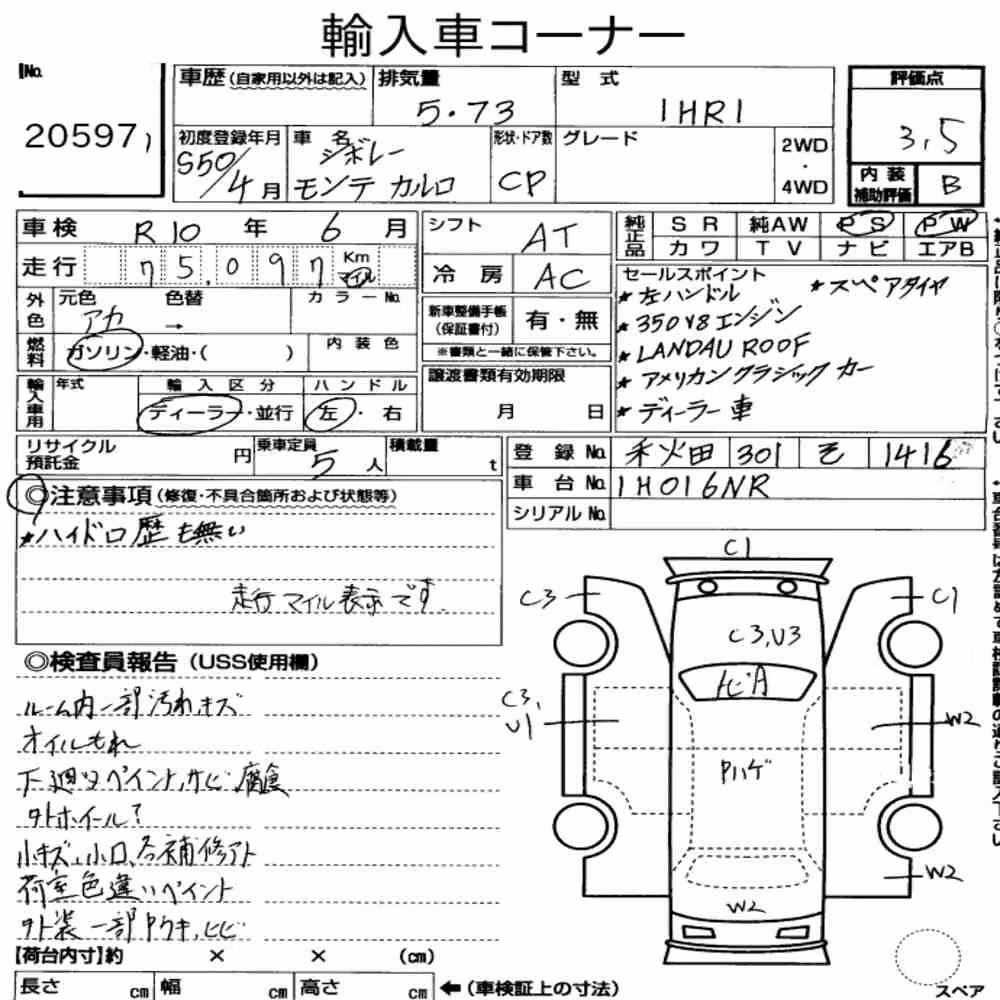 輸入車コーナー
No. 20597
車歴 (自家用以外は記入)
排気量 5.73
型式 1HR1
評価点 3,5
内装補助評価 B
初度登録年月 S50/4月
車名 シボレー モンテカルロ
形状・ドア数 CP
グレード
2WD・4WD
車検 R10年 6月
走行 75,097 Km マイル
外色 元色 アカ 色替 → カラーNo.
燃料 ガソリン・軽油・( ) 内装色
輸入車用 年式 輸入区分 ディーラー・並行 ハンドル 左・右
シフト AT
冷房 AC
新車整備手帳(保証書付) 有・無
※書類と一緒に保管下さい。
譲渡書類有効期限 月 日
純正品 SR 純AW PS PW
カワ TV ナビ エアB
セールスポイント
★左ハンドル ★スペアタイヤ
★350V8エンジン
★LANDAU ROOF
★アメリカンクラシックカー
★ディーラー車
リサイクル預託金 円 乗車定員 5人 積載量 t
登録No. 301 1416
車台No. 1H016NR
シリアルNo.
◎注意事項 (修復・不具合箇所および状態等)
★ハイドロ歴も無い
走行マイル表示です
◎検査員報告 (USS使用欄)
ルーム内一部汚れ、キズ
オイルもれ
下廻りペイント、サビ腐食
外ホイール?
小キズ、小凹、各補修アト
荷室色違いペイント
外装一部ウキ、ヒビ
C1
C3 C1
C3,U3
トビA
C3,U1 W2
Pハゲ
W2
W2
【荷台内寸】約 × × (cm)
長さ cm 幅 cm 高さ cm ←(車検証上の寸法)
スペア